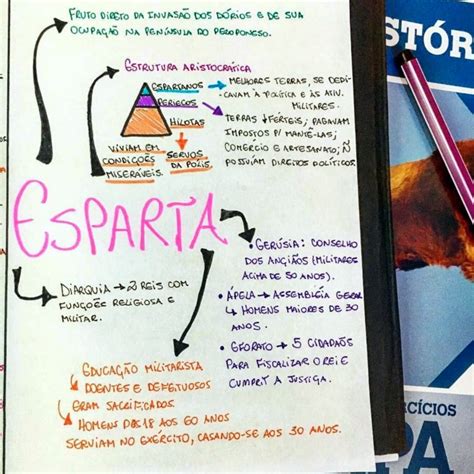 FRUTO DIRETO DA INVASÃO DOS DÓRIOS E DE SUA
OCUPAÇÃO NA PENÍNSULA DO PEROPONESO.
ESTRUTURA ARISTOCRÁTICA
ESPARTANOS
PERIECOS
HILOTAS
MELHORES TERRAS, SE DEDI-
CAVAM À POLÍTICA E ÀS ATIV.
MILITARES.
TERRAS ↓ FÉRTEIS; PAGAVAM
IMPOSTOS P/ MANTÊ-LAS;
COMERCIO E ARTESANATO; Ñ
POSSUÍAM DIREITOS POLÍTICOS.
VIVIAM EM
CONDIÇÕES
MISERÁVEIS.
SERVOS
DA PÓLIS.
ESPARTA
DIARQUIA → 2 REIS COM
FUNÇÕES RELIGIOSA E
MILITAR.
• GERÚSIA: CONSELHO
DOS ANGIÃOS (MILITARES
ACIMA DE 50 ANOS).
• ÁPELA → ASSEMBLÉIA GERAL
↳ HOMENS MAIORES DE 30
ANOS.
• EFORATO → 5 CIDADÃOS
PARA FISCALIZAR O REI E
CUMPRIR A JUSTIÇA.
EDUCAÇÃO MILITARISTA
↳ DOENTES E DEFEITUOSOS
ERAM SACRIFICADOS.
↳ HOMENS DOS 18 AOS 60 ANOS
SERVIAM NO EXÉRCITO, CASANDO-SE AOS 30 ANOS.
STÓR
ERCÍCIOS
PA